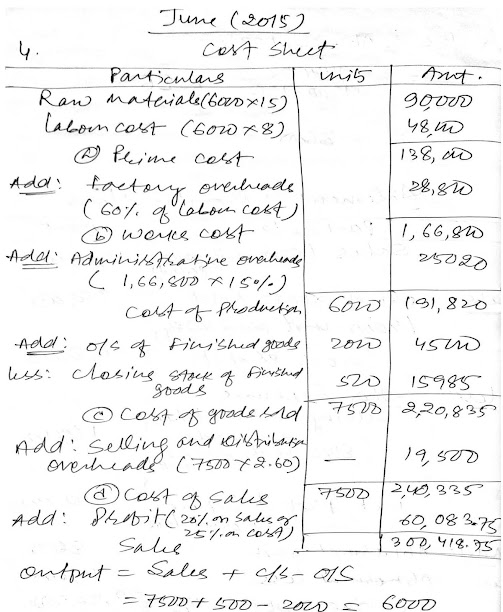 June (2015)
4. Cost Sheet
Particulars units Amt.
Raw materials (6000×15) 90,000
Labour cost (6000×8) 48,000
(a) Prime cost 138,000
Add: factory overheads 28,800
(60% of labour cost)
(b) works cost 1,66,800
Add: Administrative overheads 25020
(1,66,800 × 15%)
Cost of Production 6000 191,820
Add: o/s of finished goods 2000 45000
less: closing stock of finished goods 500 15985
(c) Cost of goods sold 7500 2,20,835
Add: Selling and Distribution
overheads (7500 × 2.60) — 19,500
(d) Cost of sales 7500 2,40,335
Add: Profit (20% on sales or 25% on cost) 60,083.75
Sales 300,418.75
output = Sales + c/s - O/S
= 7500 + 500 - 2000 = 6000